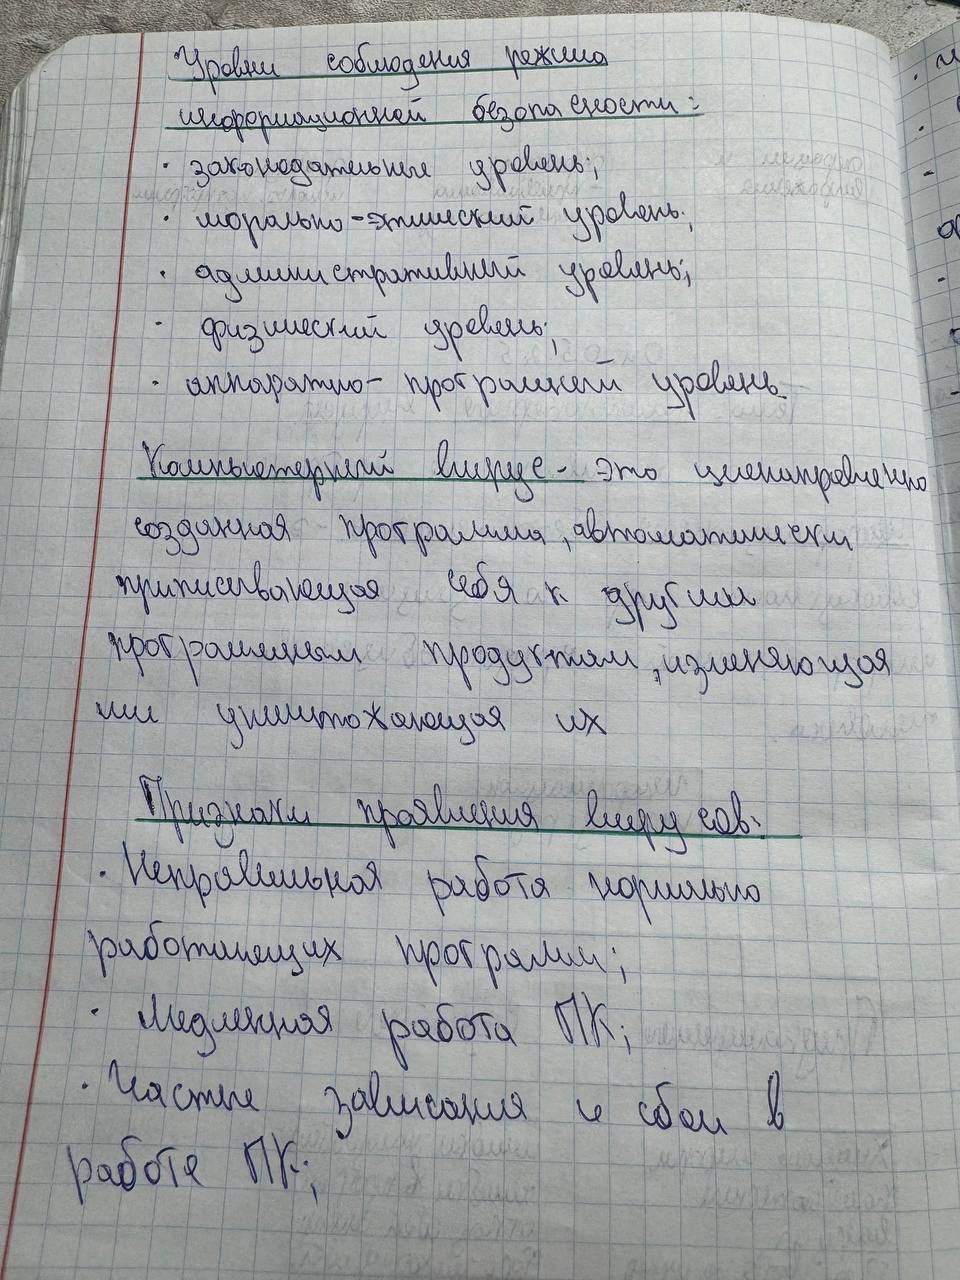 Уровни соблюдения режима
информационной безопасности:
· законодательные уровень;
· морально-этический уровень;
· административный уровень;
· физический уровень;
· аппаратно-програмный уровень
Компьютерный вирус - это целенаправленно
созданная программа, автоматически
приписывающая себя к другим
программным продуктам, изменяющая
или уничтожающая их
Признаки проявления вирусов:
· Неправильная работа нормально
работающих программ;
· Медленная работа ПК;
· Частые зависания и сбои в
работе ПК;